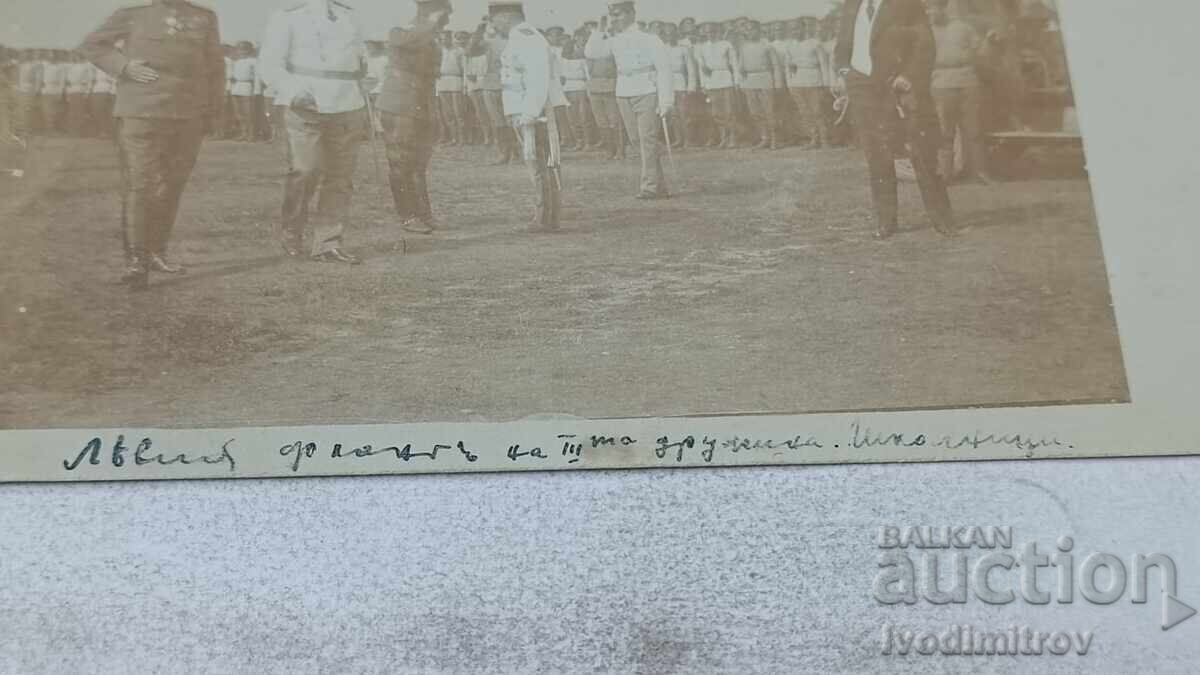 Лѣвий флангъ на III та дружина. Школници.
BALKAN
auction
Ivodimitrov